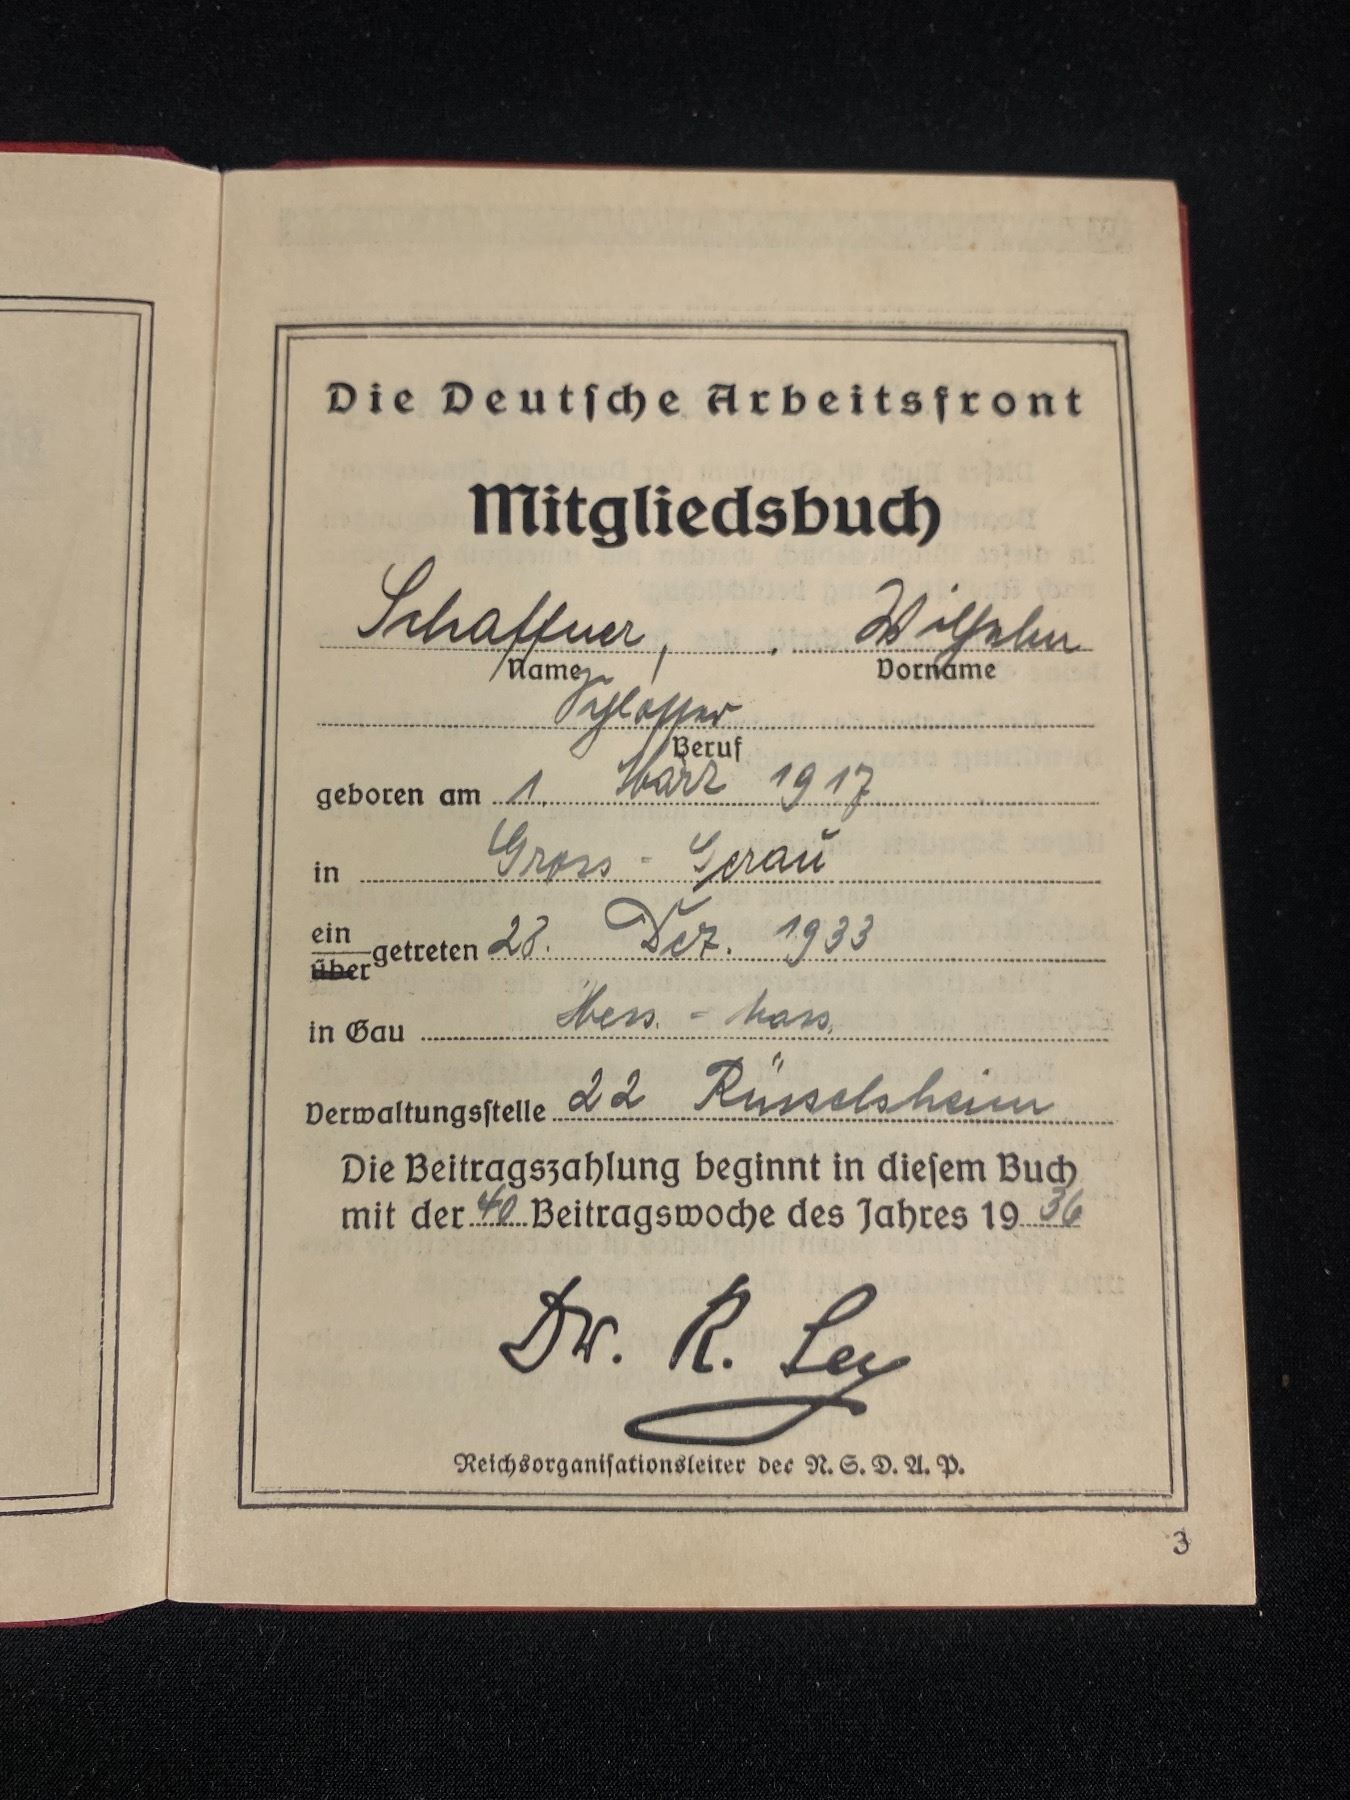 Die Deutsche Arbeitsfront
Mitgliedsbuch
Schaffner, Wilhelm
Name Vorname
Schlosser
Beruf
geboren am 1. März 1917
in Gross-Gerau
ein
über getreten 28. Dez. 1933
in Gau Hess.-Nass.
Verwaltungsstelle 22 Rüsselsheim
Die Beitragszahlung beginnt in diesem Buch
mit der 40 Beitragswoche des Jahres 1936
Dr. R. Ley
Reichsorganisationsleiter der N.S.D.A.P.
3